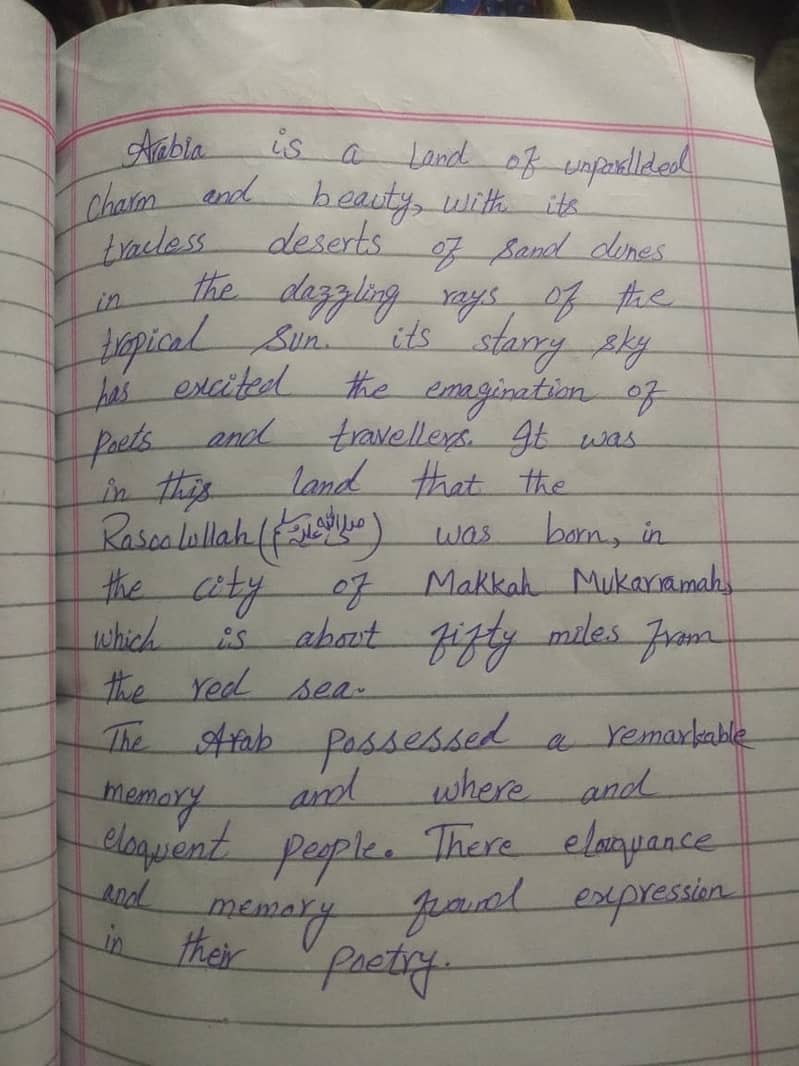 Arabia is a Land of unparllded
Charm and beauty, with its
tracless deserts of sand dunes
in the dazzling rays of the
tropical sun. its starry sky
has excited the emagination of
poets and travellers. It was
in this land that the
Rasoolullah (صلى الله عليه وسلم) was born, in
the city of Makkah Mukarramah,
which is about fifty miles from
the red sea.
The Arab possessed a remarkable
memory and where and
eloquent people. There elouquance
and memory found expression
in their poetry.